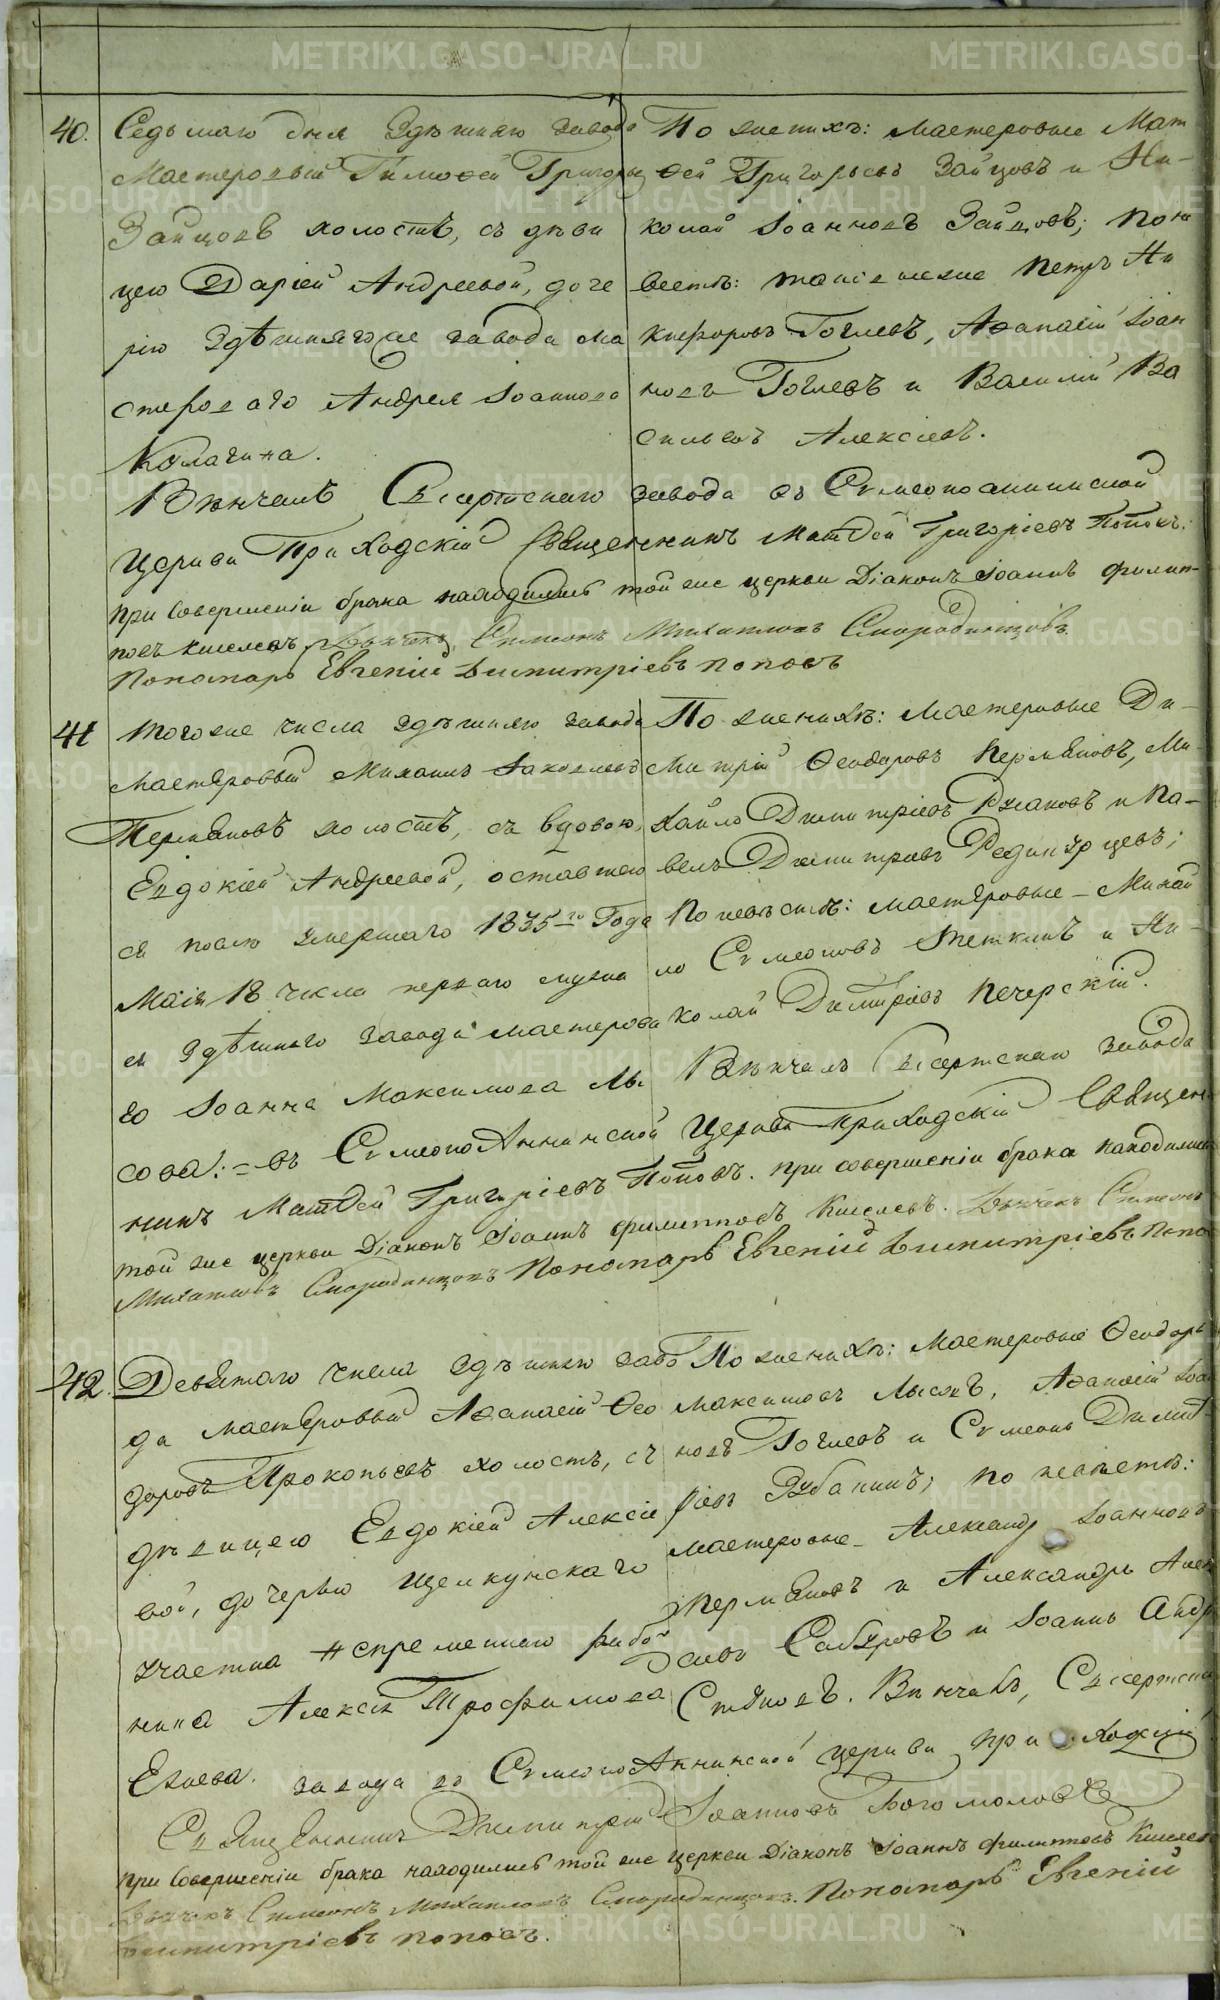 40. Седьмаго дня здѣшняго завода
Мастеровый Тимоѳей Григорьевъ
Зайцовъ холостъ, съ дѣви
цею Дарiей Андреевой, доче
рiю здѣшнягоже завода ма
стероваго Андрея Iоаннова
Колачина.
По женихѣ: Мастеровые Мат
ѳей Григорьевъ Зайцовъ и Ни-
колай Iоанновъ Зайцовъ; по не
вестѣ: таковыеже Петръ Ни
кифоровъ Гоглевъ, Аѳанасiй Iоан
новъ Гоглевъ и Василiй Ва
сильевъ Алексѣевъ.
Вѣнчалъ Сысертскаго завода въ Симеоноаннинской
Церкви Приходскiй Священникъ Матѳей Григорiевъ Поповъ.
при совершенiи брака находились той же церкви Дiаконъ Iоаннъ Филип-
повъ Киселевъ, Дьячекъ Симеонъ Михаиловъ Смородинцовъ.
Пономарь Евгенiй Димитрiевъ Поповъ
41 Тогоже числа здѣшняго завода
Мастеровый Михаилъ Iаковлевъ
Пермяковъ холостъ, съ вдовою,
Евдокiей Андреевой, оставшею
ся послѣ умершаго 1835-го Года
Маiя 18 числа перваго мужа
ея здѣшняго завода мастерова
го Iоанна Максимова Лы
сова:=
По женихѣ: Мастеровые Ди-
митрiй Ѳеодоровъ Пермяковъ, Ми-
хайло Димитрiевъ Русаковъ и Па-
велъ Димитрiевъ Редикурцевъ;
По невѣстѣ: мастеровые - Михай
ло Симеоновъ Теткинъ и Ни-
колай Димитрiевъ Печерскiй.
Вѣнчалъ Сысертскаго завода
въ СимеоноАннинской Церкви Приходскiй Священ
никъ Матѳей Григорiевъ Поповъ. при совершенiи брака находились
той же церкви Дiаконъ Iоаннъ Филипповъ Киселевъ. Дьячекъ Симеонъ
Михаиловъ Смородинцовъ Пономарь Евгенiй Димитрiевъ Попо
42. Девятаго числа здѣшняго заво
да мастеровый Аѳанасiй Ѳео
доровъ Прокопьевъ холостъ, съ
дѣвицею Евдокiей Алексiе
вой, дочерью Щелкунскаго
участка непременнаго рабо
ника Алексiя Трофимова
Ежева.
По женихѣ: Мастеровые Ѳеодоръ
Максимовъ Лысовъ, Аѳанасiй Iоан
новъ Гоглевъ и Симеонъ Димит-
рiевъ Рубакинъ; по невѣстѣ:
мастеровые - Александр Iоанновъ
Пермяковъ и Александръ Алек
Сабуровъ и Iоаннъ Андр
Вѣнчалъ, Сысертска
завода въ СимеоноАннинской церкви приходскiй
Священникъ Димитрiй Iоанновъ Богомоловъ
при совершенiи брака находились той же церкви Дiаконъ Iоаннъ Филипповъ Киселев
Дьячекъ Симеонъ Михаиловъ Смородинцовъ. Пономарь Евгенiй
Димитрiевъ Поповъ.